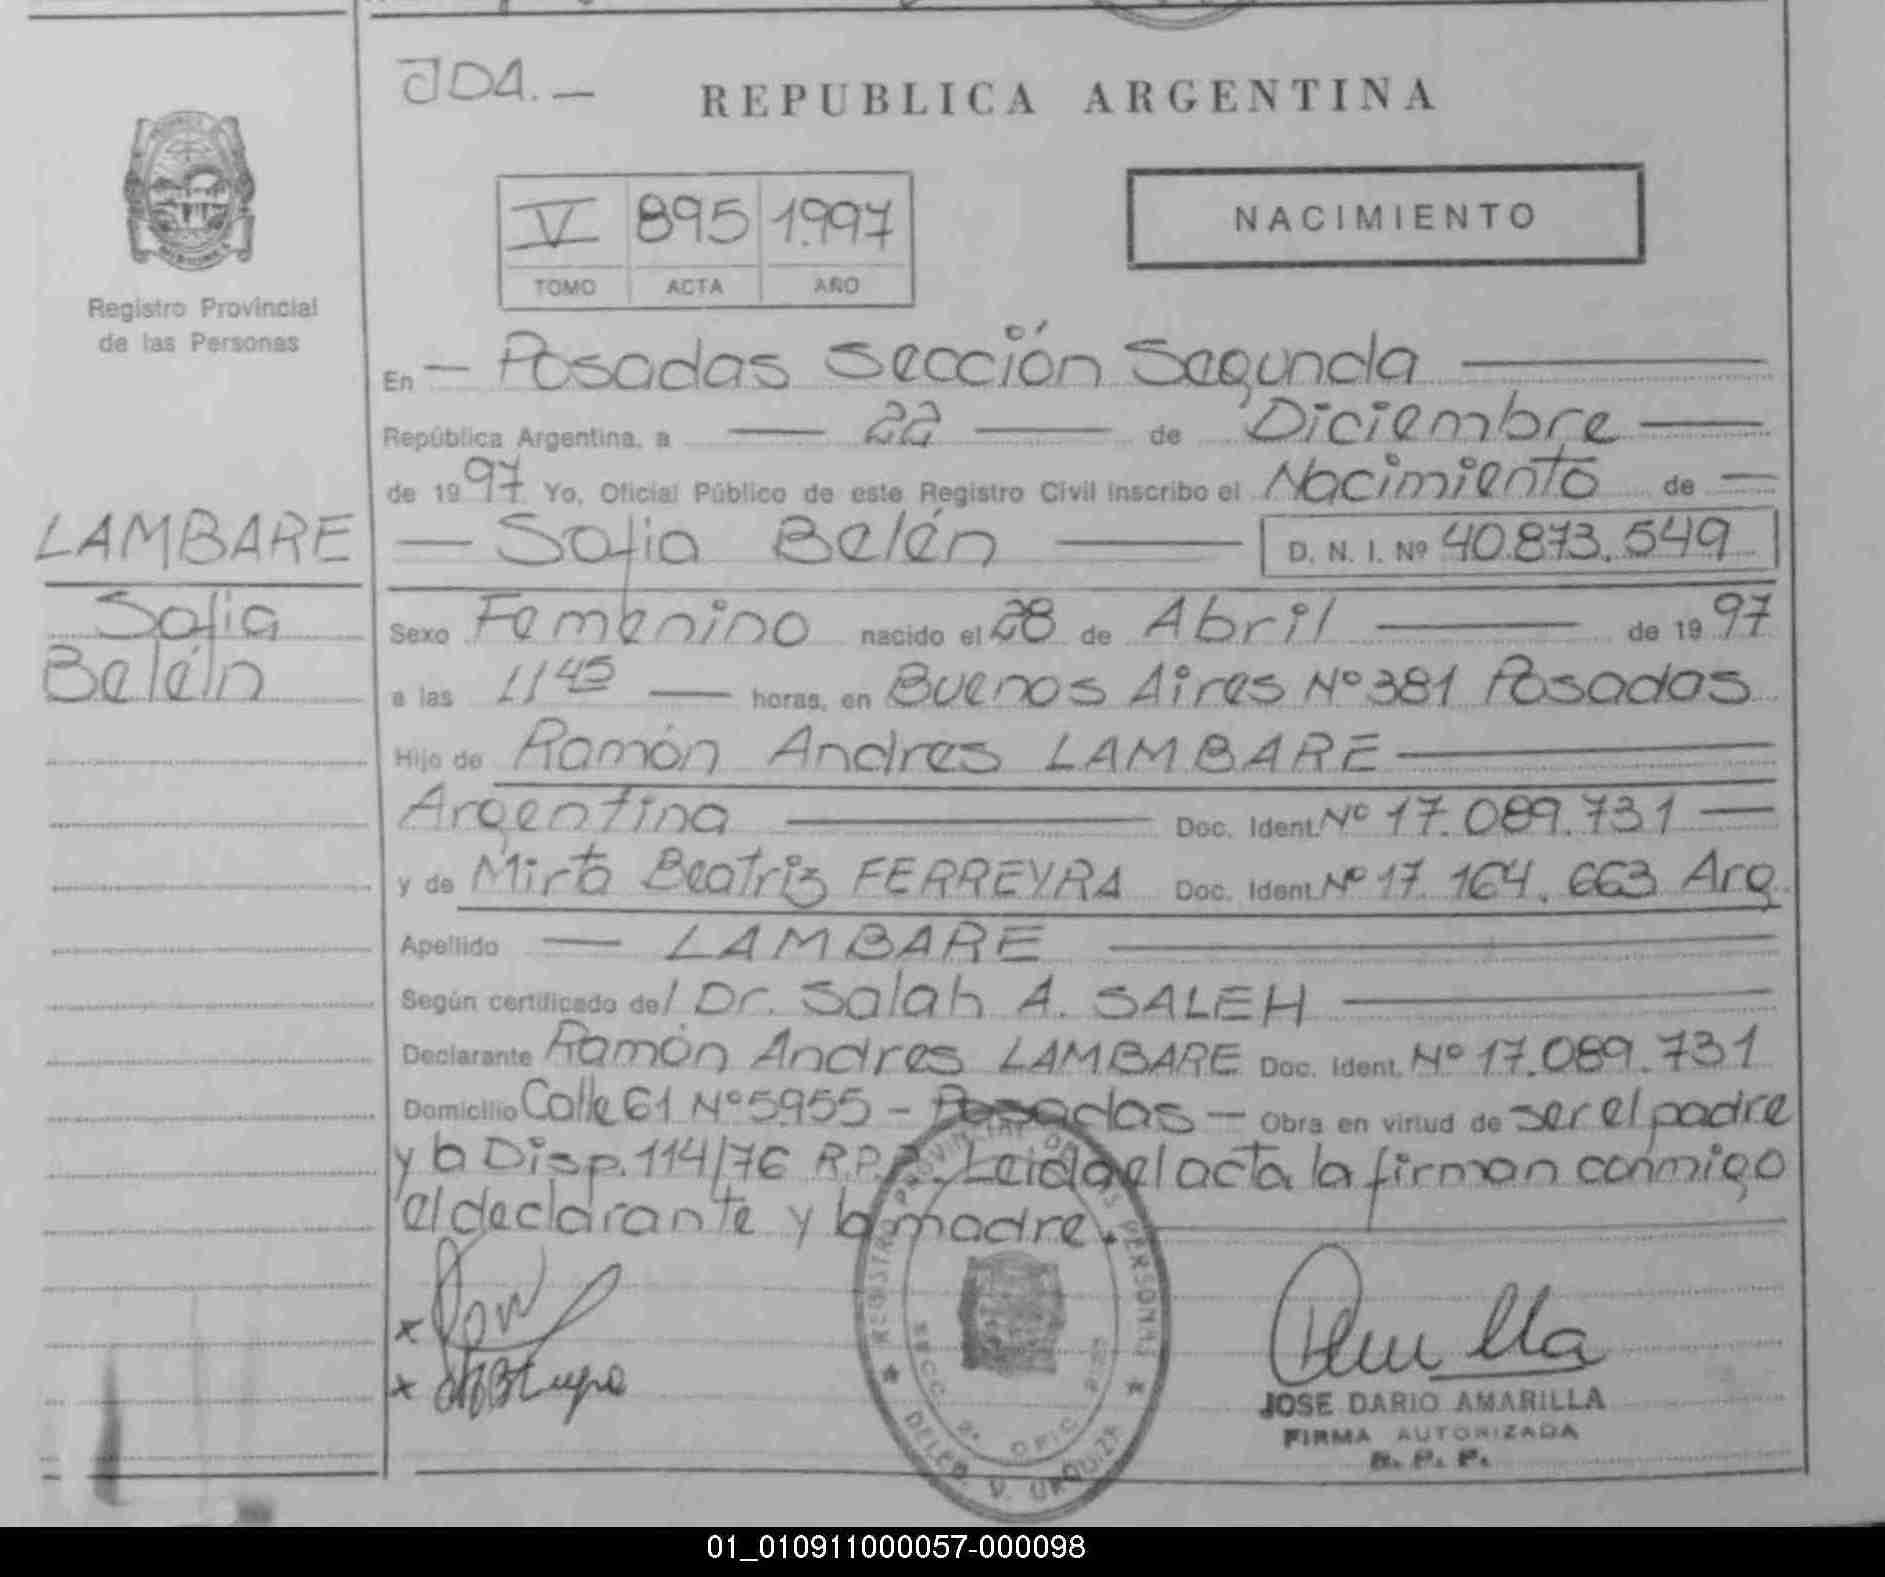 JDA.-
REPUBLICA ARGENTINA
V 895 1.997
TOMO ACTA AÑO
NACIMIENTO
Registro Provincial
de las Personas
En — Posadas Sección Segunda —
República Argentina, a — 22 — de Diciembre —
de 1997 Yo, Oficial Público de este Registro Civil inscribo el Nacimiento de —
LAMBARE
Sofia
Belén
— Sofia Belén — D. N. I. Nº 40.873.549
Sexo Femenino nacido el 28 de Abril — de 1997
a las 11 45 — horas, en Buenos Aires Nº 381 Posadas
Hijo de Ramón Andres LAMBARE —
Argentina — Doc. Ident. Nº 17.089.731 —
y de Mirta Beatriz FERREYRA Doc. Ident. Nº 17.164.663 Arg.
Apellido — LAMBARE —
Según certificado del Dr. Salah A. SALEH —
Declarante Ramón Andres LAMBARE Doc. Ident. Nº 17.089.731
Domicilio Calle 61 Nº 5955 - Posadas - Obra en virtud de ser el padre
y la Disp. 114/76 R.P.P. Leida el acta la firman conmigo
el declarante y la madre.
REGISTRO PROVINCIAL DE LAS PERSONAS
SECC. 2ª OFIC.
DELEG. V. URQUIZA
JOSE DARIO AMARILLA
FIRMA AUTORIZADA
R. P. P.
01_010911000057-000098